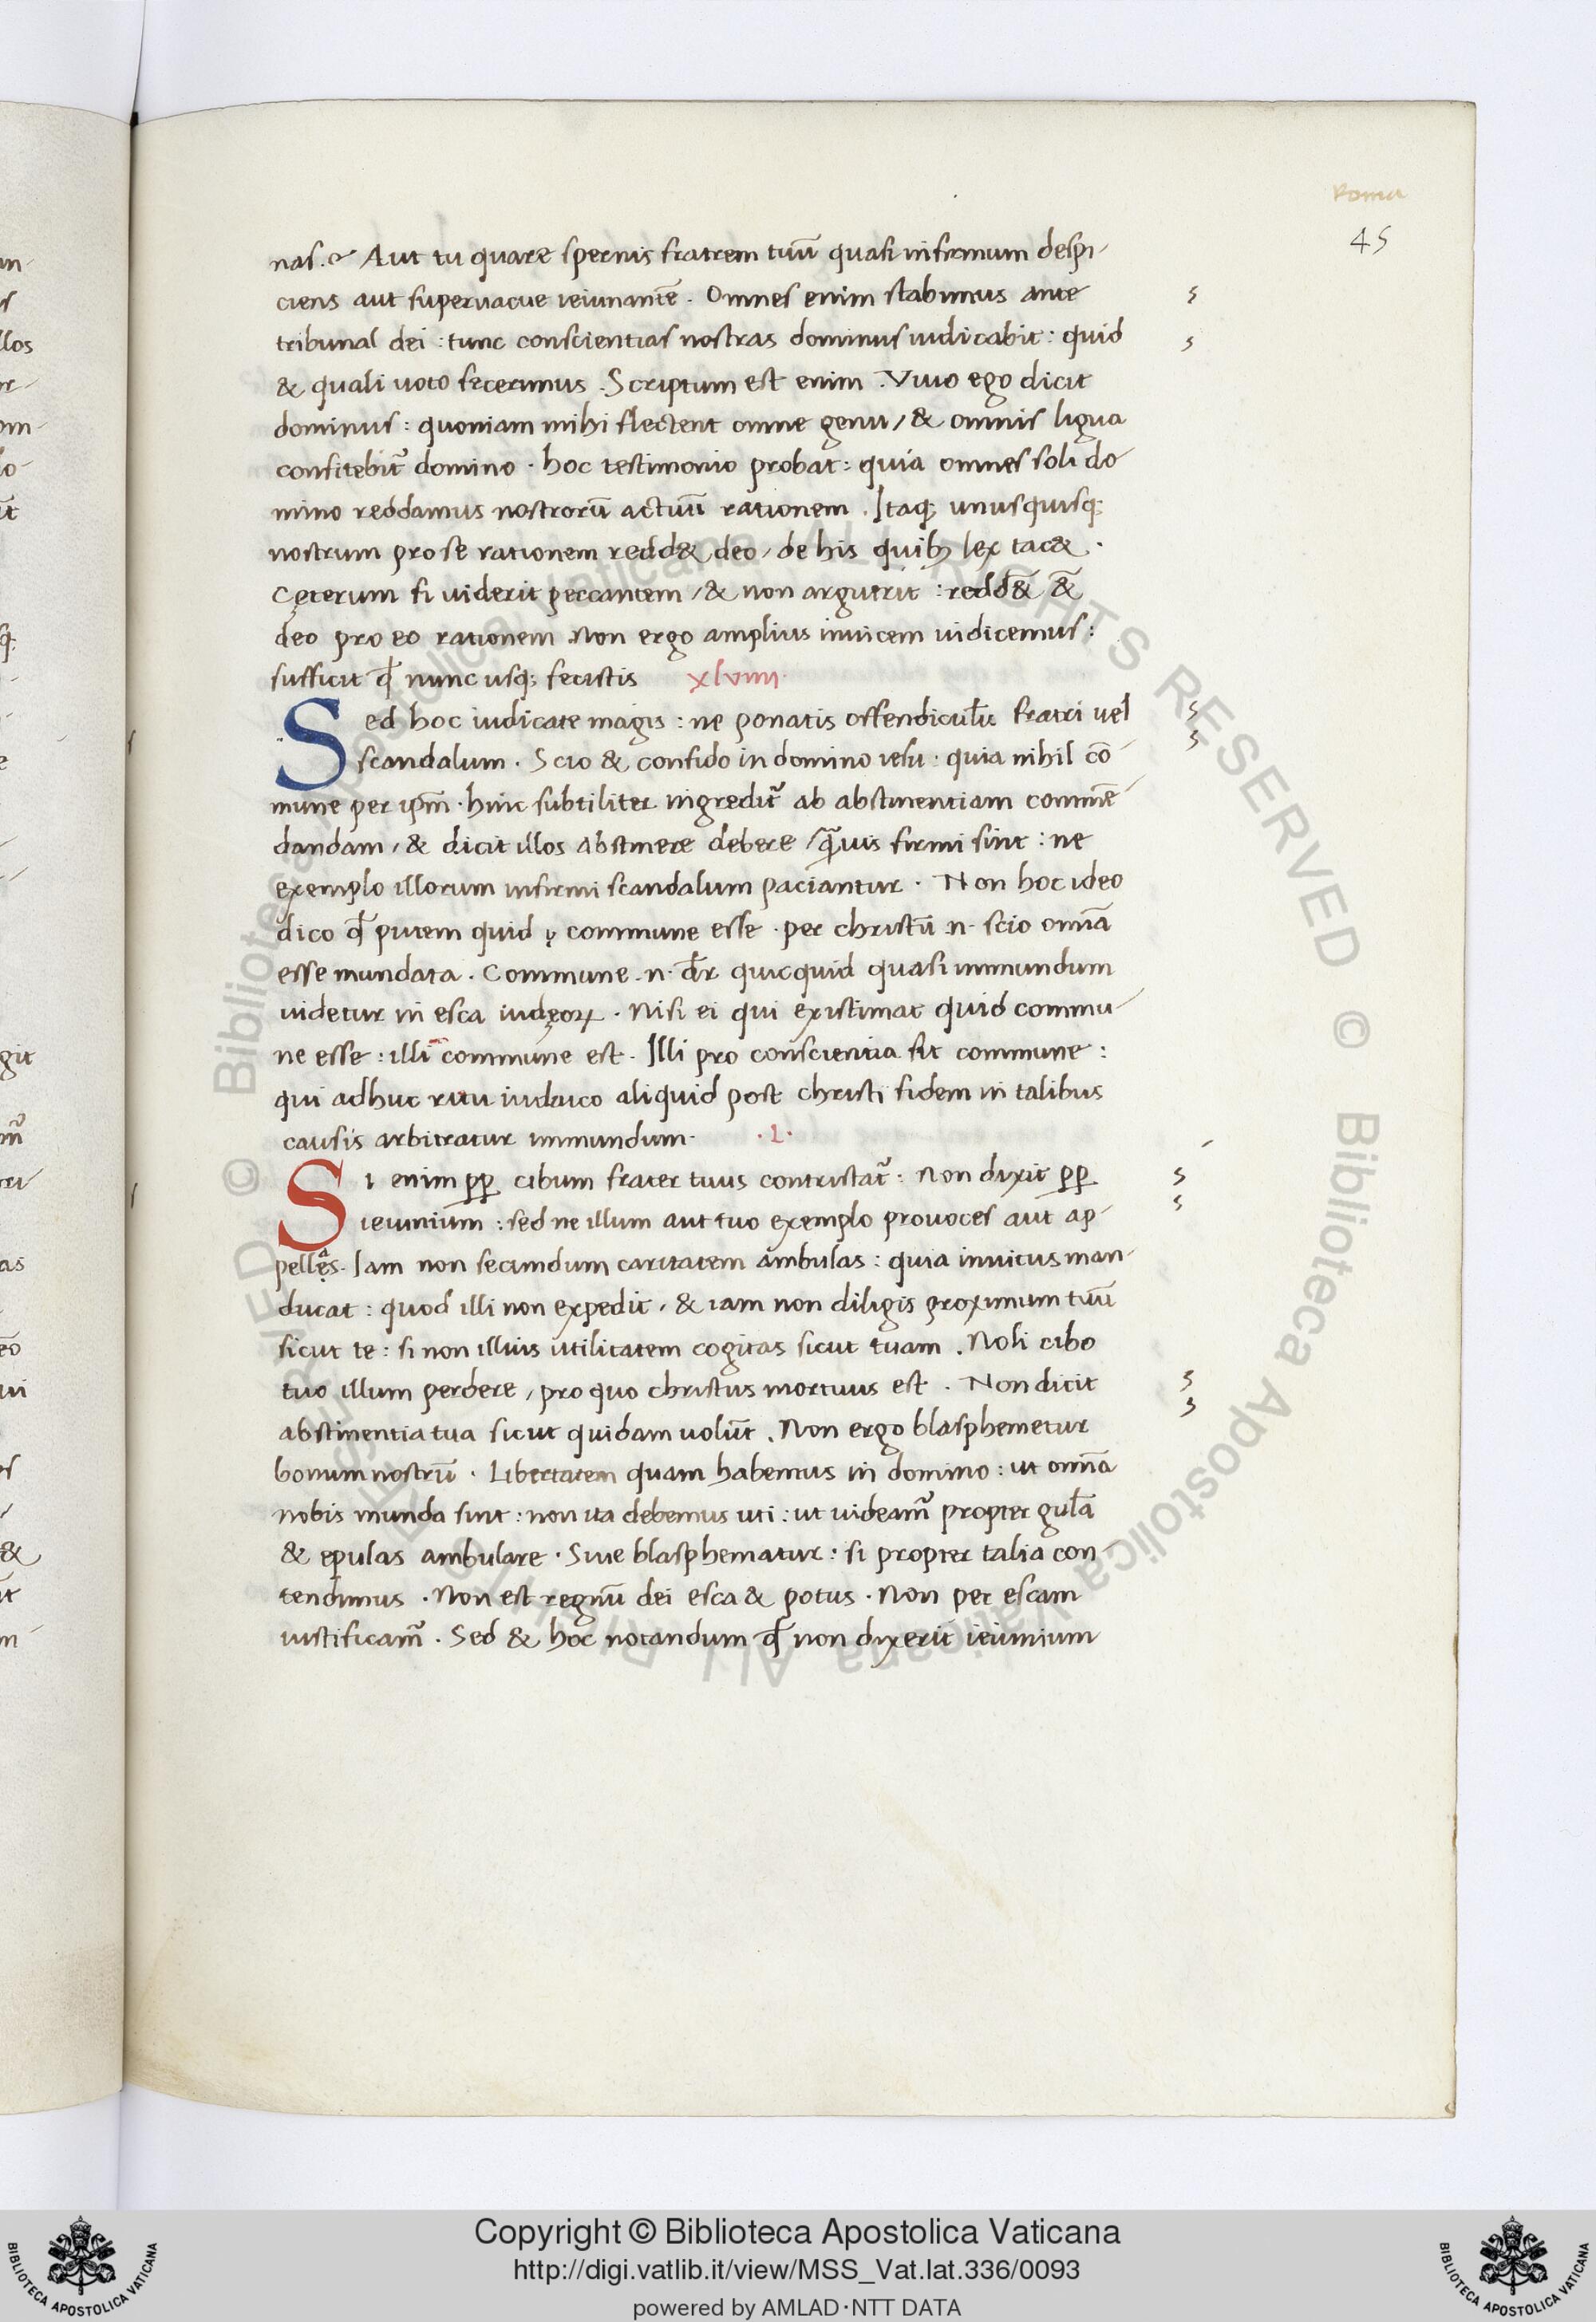 Roma
45
nas. & Aut tu quare spernis fratrem tuū quasi infirmum despi-
ciens aut superuacue ieiunantē. Omnes enim stabimus ante
tribunal dei : tunc conscientias nostras dominus iudicabit : quid
& quali uoto fecerimus . Scriptum est enim . Viuo ego dicit
dominus : quoniam mihi flectent omne genu / & omnis ligua
confitebit᷑ domino . hoc testimonio probat : quia omnes soli do-
mino reddamus nostrorū actuū rationem . Itaq; unusquisq;
nostrum pro se rationem redd& deo / de his quib; lex tac& .
Cęterum si uiderit peccantem / & non arguerit : redd& &̄
deo pro eo rationem . Non ergo amplius inuicem iudicemus :
sufficit qđ nunc usq; fecistis xlviiii.
Sed hoc iudicate magis : ne ponatis offendiculū fratri uel
scandalum . Scio & confido in domino iesu : quia nihil cō-
mune per ipm̄ . hinc subtiliter ingredit᷑ ab abstinentiam commē-
dandam / & dicit illos abstinere debere / q̄uis firmi sint : ne
exemplo illorum infirmi scandalum paciantur . Non hoc ideo
dico qđ putem quid ꝑ commune esse . per christū .n. scio omīa
esse mundata . Commune .n. dr̄ quicquid quasi immundum
uidetur in esca iudęoꝝ . Nisi ei qui existimat quid commu-
ne esse : illi commune est . Illi pro conscientia fit commune :
qui adhuc ritu iudaico aliquid post christi fidem in talibus
causis arbitratur immundum . .l.
Si enim pp̄ cibum frater tuus contristat᷑ : Non dixit pp̄
ieiunium : sed ne illum aut tuo exemplo prouoces aut ap-
pellęs . Iam non secundum caritatem ambulas : quia inuitus man-
ducat : quod illi non expedit / & iam non diligis proximum tuū
sicut te : si non illius utilitatem cogitas sicut tuam . Noli cibo
tuo illum perdere / pro quo christus mortuus est . Non dicit
abstinentia tua sicut quidam uolūt . Non ergo blasphemetur
bonum nostrū . Libertatem quam habemus in domino : ut omīa
nobis munda sint : non ita debemus uti : ut uideam᷑ propter gulā
& epulas ambulare . Siue blasphematur : si propter talia con-
tendimus . Non est regnū dei esca & potus . Non per escam
iustificam᷑ . Sed & hoc notandum qđ non dixerit ieiunium
© Biblioteca Apostolica Vaticana ALL RIGHTS RESERVED © Biblioteca Apostolica Vaticana ALL RIGHTS RESERVED
Copyright © Biblioteca Apostolica Vaticana
http://digi.vatlib.it/view/MSS_Vat.lat.336/0093
powered by AMLAD·NTT DATA
BIBLIOTECA APOSTOLICA VATICANA
BIBLIOTECA APOSTOLICA VATICANA